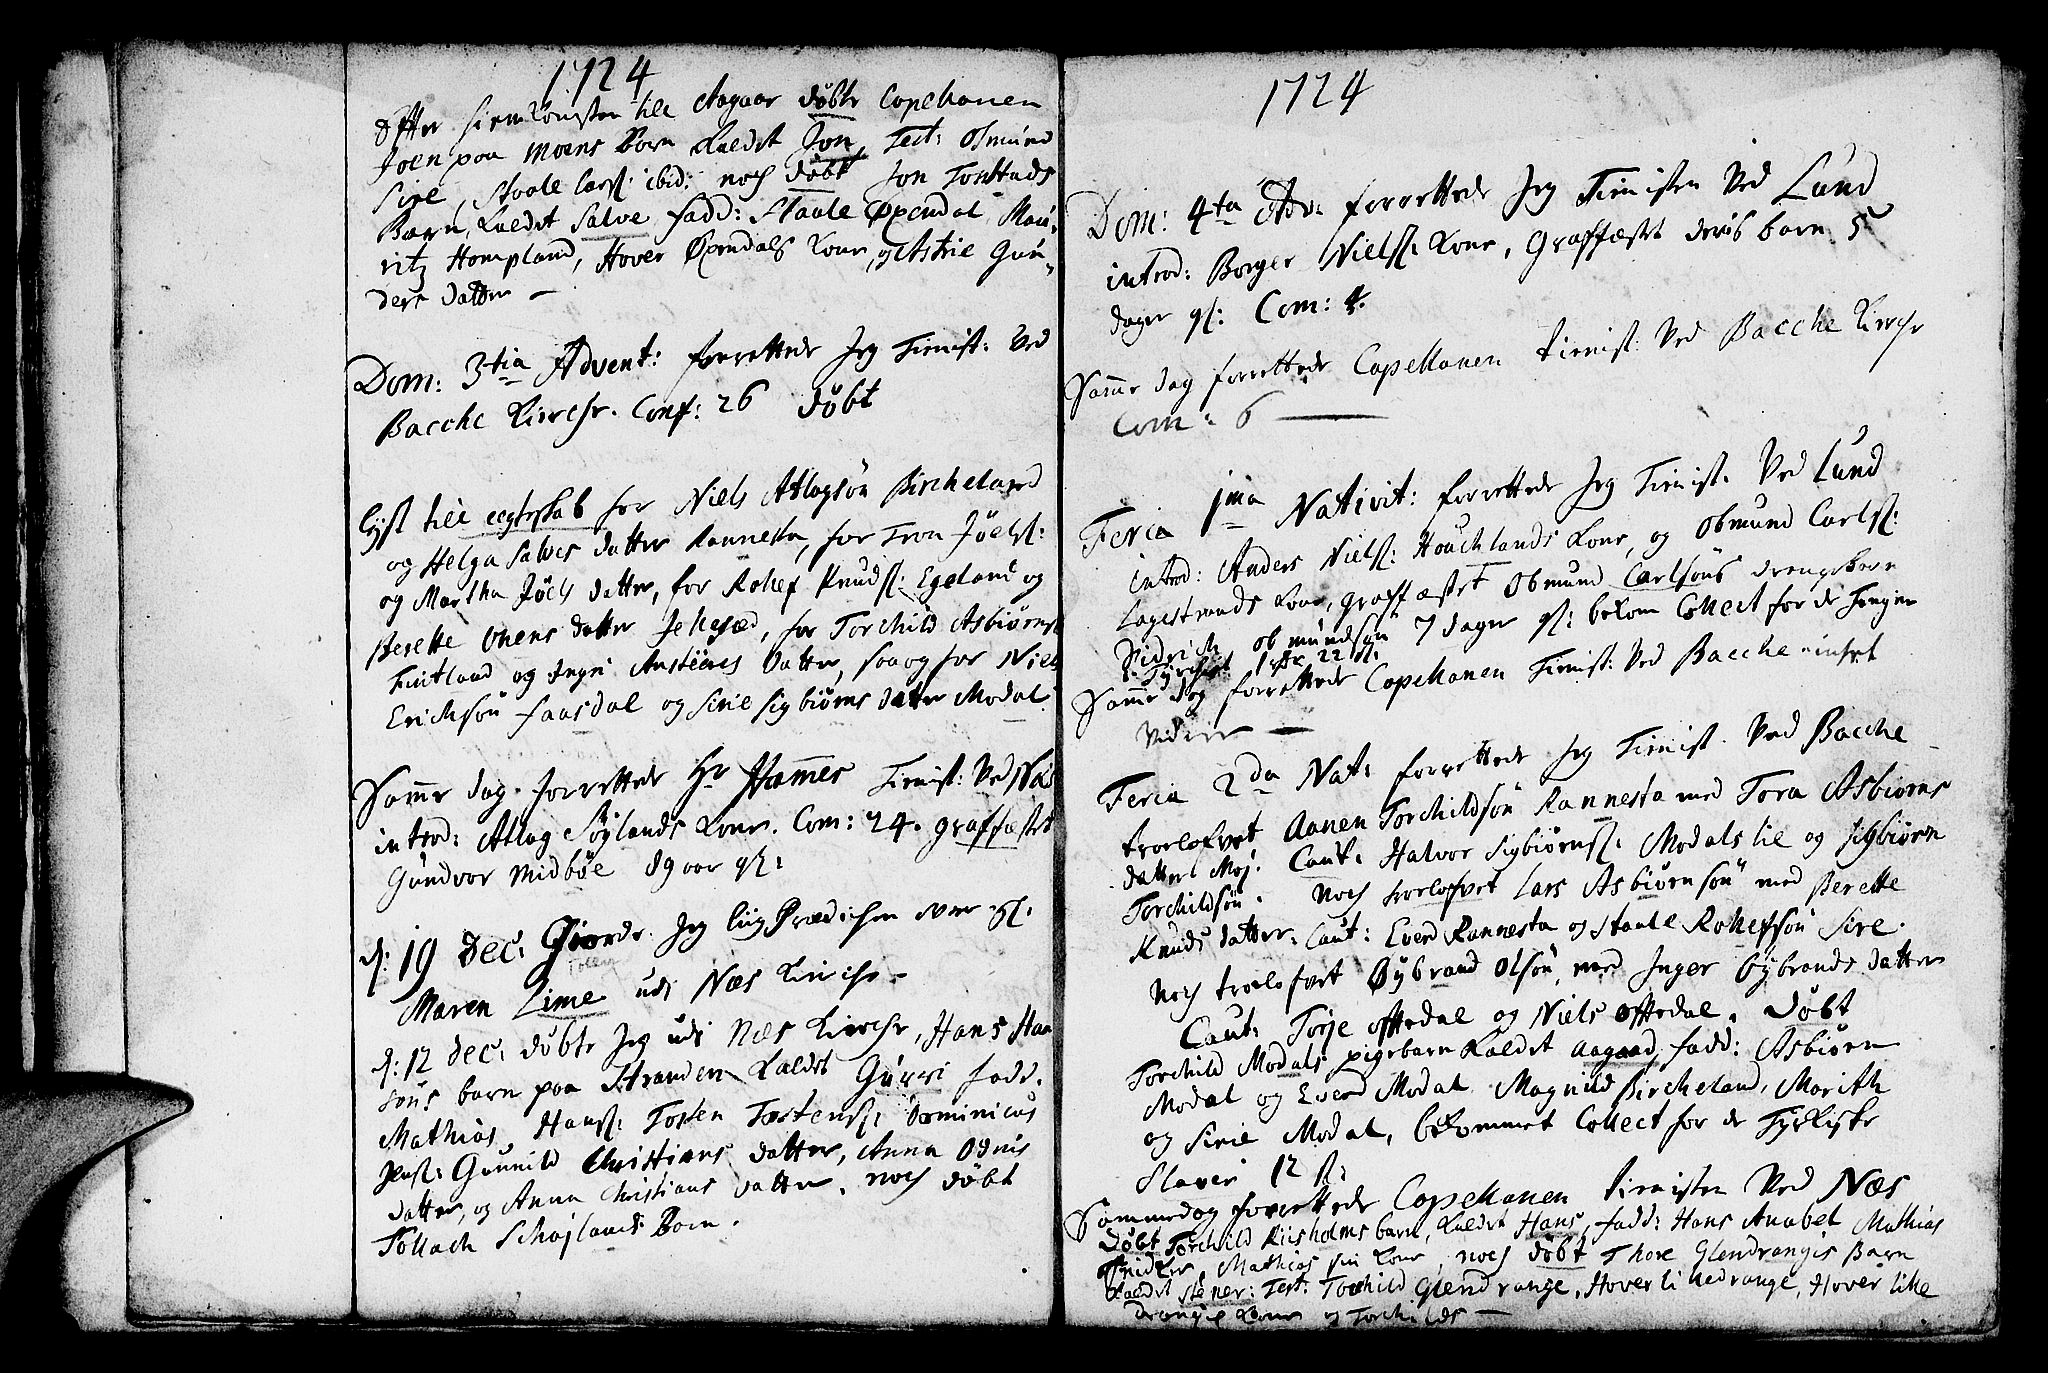 1724
Efter hiemkomsten till Aagaar døbte Capellanen
Joen paa Moens Barn kaldet Jon, Test: Osmund
Sire, Staale Lars: ibid: noch døbt Jon Tonstads
Barn, kaldet Salve fadd: Staale Øxendal, Mau-
ritz Hompland, Hover Øxendals kone, og Astrie Gun-
ders datter —
Dom: 3tia Advent: forrettede Jeg Tienist: Ved
Bacche Kirche. Conf: 26 døbt
lyst till ægteskab for Niels Atlagsön Bircheland
og Helga Salves datter Rannesta, for Tron Jöels:
og Martha Jöels datter, for Rolief Knuds: Egeland og
Berette Onens datter, for Torchild Asbiörns
Fintland og Ingri datter, saa og for Niels
Erichsön Faasdal og Sirie Sigbiörns datter Modal
Samme dag forrettede Hr Hammer Tienist: Ved Næs
introd: Atlag Söylands kone. Com: 24. graffæstet
Gundvor Midböe 89 aar gl:
d: 19 Dec: Giorde Jeg liig Prædichen over Sl:
Maren Lime udi Næs Kirche.
d: 12 Dec: döbte Jeg udi Næs Kirche, Hans Han
söns barn paa Stranden kaldet Gurri fadd.
Mathias Hans: Tosten Tostens: Dominicus
Gunild Christians datter, Anna Odnis
datter, og Anna Christians datter. noch döbt
Tollach Schojlands Barn.
1724
Dom: 4ta Adv: forrettede Jeg Tienisten Ved Lund
introd: Borger Niels: kone, Graffæstet deris barn 5
dager gl: Com: 4.
Samme dag forrettede Capellanen tienist: Ved Bacche Kirche
Com: 6 —
Feria 1ma Nativit: forrettede Jeg Tienist. Ved Lund
introd: Anders Niels: Houchlands kone, og Obmund Carls:
Lagestrands kone, graffæstet Obmund Carlsöns drengebarn
Didrich Obmundsön 7 dager gl: bekom Collect for de fangne
i Tyrchiet 22 s:
Samme dag forrettede Capellanen Tienist: Ved Bacche intet
Videre —
Feria 2da Nat: forrettede Jeg Tienist. Ved Bacche
troelofvet Aanen Torchildsön Rannesta med Tora Asbiörns
datter Moj: Caut: Halvor Sigbiörns: Modals lie og Sigbiörn
Torchildsön. Noch troelofvet Lars Asbiörnsön med Berette
Knuds datter. Caut: Everd Rannesta og Staale Roliefsön Sire.
Noch troelofvet Øybrand Olsön, med Inger Øybrands datter
Caut: Torje Offtedal og Niels Offtedal. Döbt
Torchild Modals pigebarn kaldet Aagaad, fadd: Asbiörn
Modal og Everd Modal Magnild Bircheland, Marith
og Sirie Modal, bekommet Collect for de Tyrkiske
Slaver 12 s:
Samme dag forrettede Capellanen tienisten Ved Næs
Döbt Torchild Riisholms barn, kaldet Hans, fadd: Hans Anabel Mathias
Mathias kone, noch döbt Thore Glendrangis Barn
kaldet Stener: Test: Torchild Glendrange, Hover li
drangis kone og Torchilds —